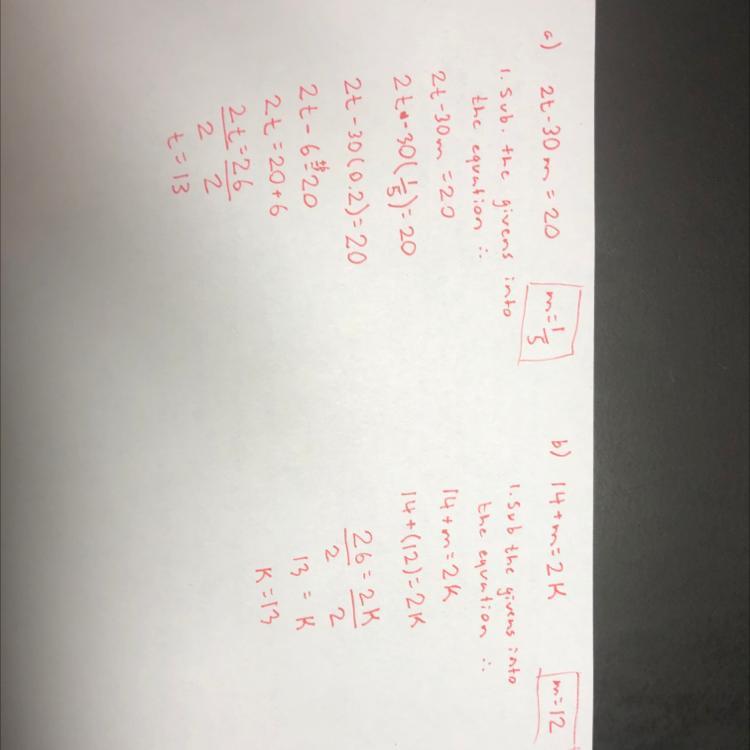 a) 2t-30m=20 m=1/5
1. Sub. the givens into
the equation ∴
2t-30m=20
2t-30(1/5)=20
2t-30(0.2)=20
2t-6=20
2t=20+6
2t/2=26/2
t=13
b) 14+m=2K m=12
1. Sub the givens into
the equation ∴
14+m=2K
14+(12)=2K
26/2=2K/2
13=K
K=13